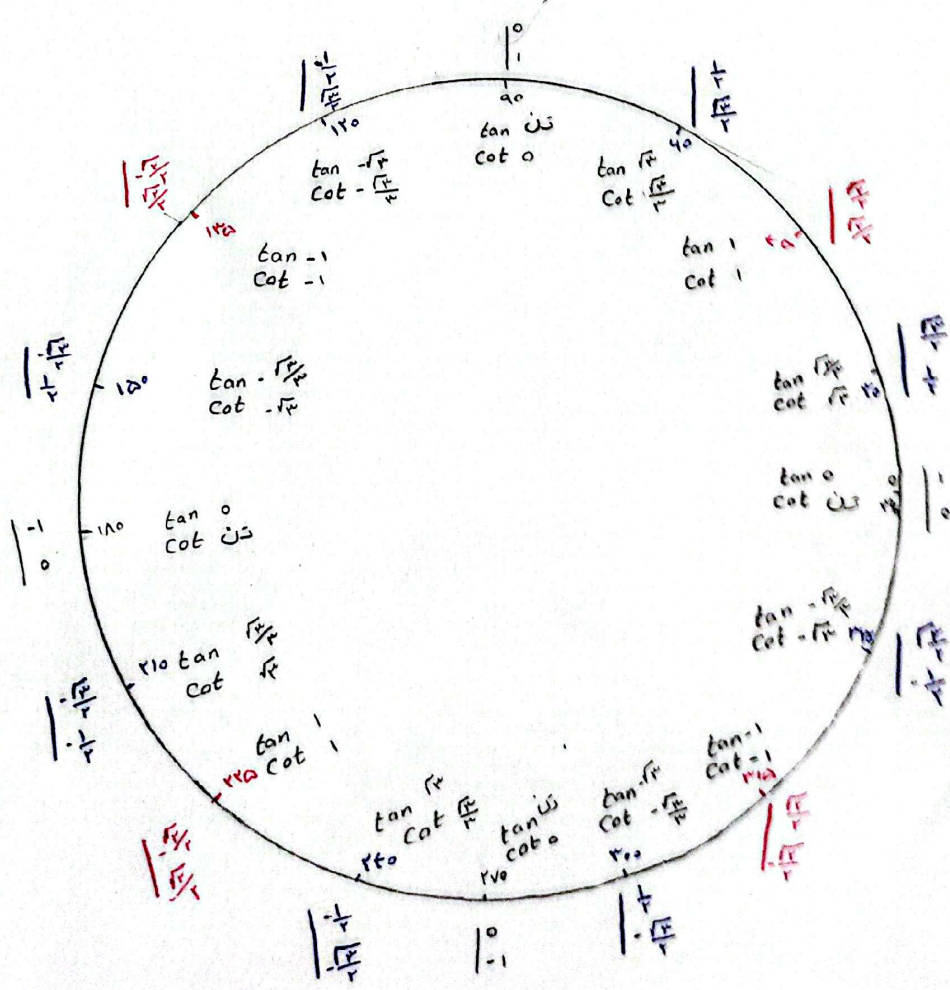 ۰
۱
۹۰
tan تن
cot ۰
۱/۲
√۳/۲
۶۰
tan √۳
cot √۳/۳
√۲/۲
√۲/۲
۴۵
tan ۱
cot ۱
√۳/۲
۱/۲
۳۰
tan √۳/۳
cot √۳
۱
۰
۰
۳۶۰
tan ۰
cot تن
√۳/۲
-۱/۲
tan -√۳/۳
cot -√۳
√۲/۲
-√۲/۲
۳۱۵
tan -۱
cot -۱
۱/۲
-√۳/۲
۳۰۰
tan -√۳
cot -√۳/۳
۰
-۱
۲۷۰
tan تن
cot ۰
-۱/۲
-√۳/۲
۲۴۰
tan √۳
cot √۳/۳
-√۲/۲
√۲/۲
۲۲۵
tan ۱
cot ۱
-√۳/۲
-۱/۲
۲۱۰
tan √۳/۳
cot √۳
-۱
۰
۱۸۰
tan ۰
cot تن
-√۳/۲
۱/۲
۱۵۰
tan -√۳/۳
cot -√۳
-√۲/۲
√۲/۲
۱۳۵
tan -۱
cot -۱
-۱/۲
√۳/۲
۱۲۰
tan -√۳
cot -√۳/۳